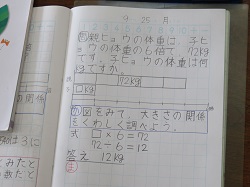 9 25 月
問 親ヒョウの体重は、子ヒ
ョウの体重の6倍で 72kg
です。子ヒョウの体重は何
kgですか。
72kg
□kg
図をみて、大きさの関係
をくわしく調べよう。
式 □×6=72
72÷6=12
答え 12kg
の関係